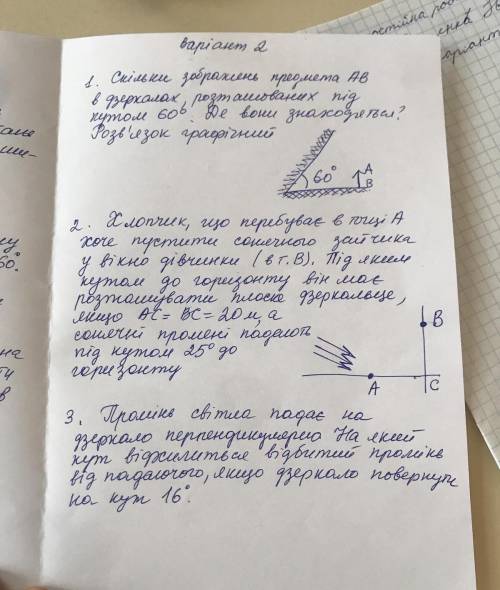 варіант 2
1. Скільки зображень предмета АВ
в дзеркалах, розташованих під
кутом 60°. Де вони знаходяться?
Розв'язок графічний
60°
А
В
2. Хлопчик, що перебуває в точці А
хоче пустити сонячного зайчика
у вікно дівчинки (в т. В). Під яким
кутом до горизонту він має
розташувати плоске дзеркальце,
якщо АС = ВС = 20м, а
сонячні промені падають
під кутом 25° до
горизонту
В
А
С
3. Промінь світла падає на
дзеркало перпендикулярно На який
кут відхилиться відбитий промінь
від падаючого, якщо дзеркало повернути
на кут 16°.
60°.
на
в